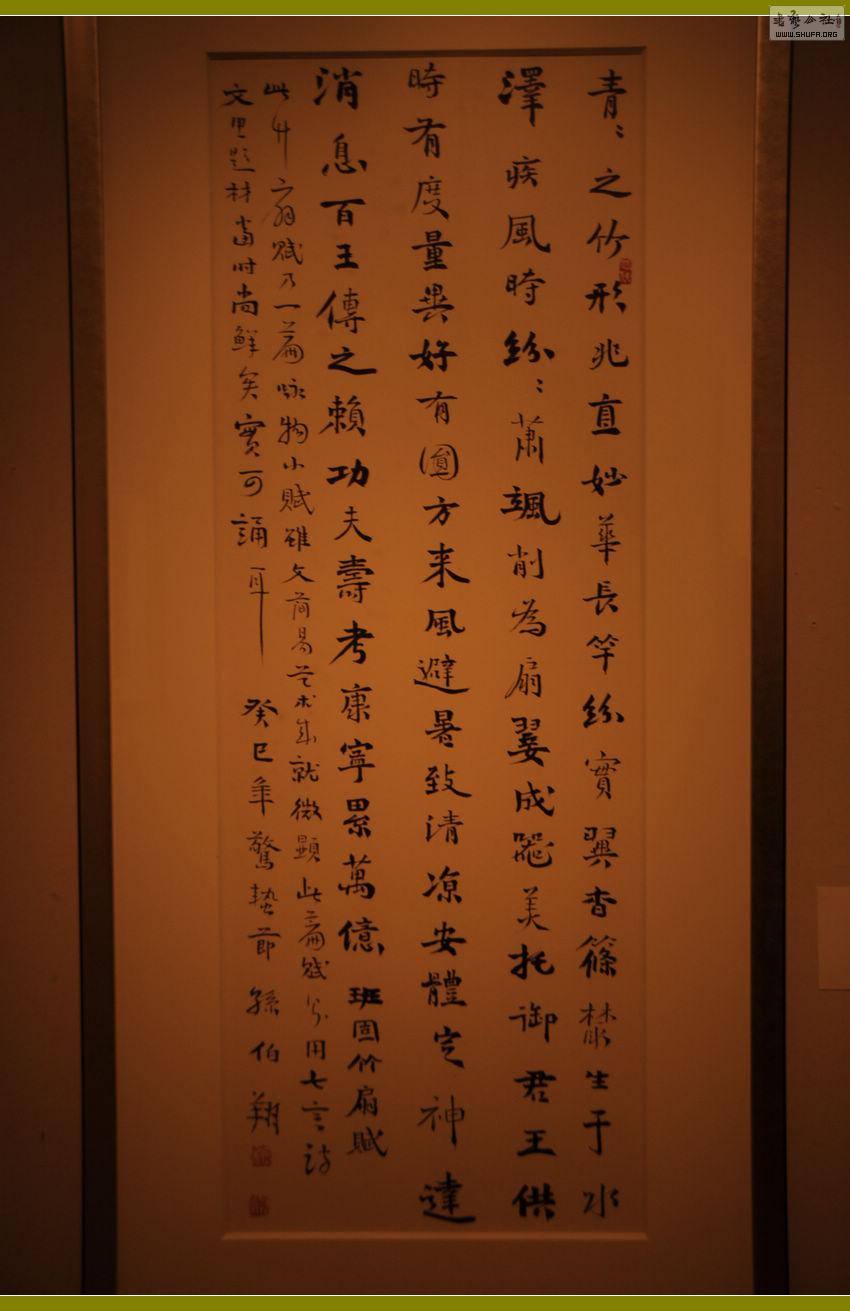 青〻之竹形兆直妙華長竿紛實翼杳篠叢生于水
澤疾風時紛〻蕭颯削為扇翣成器美托御君王供
時有度量異好有圓方来風避暑致清涼安體定神達
消息百王傳之賴功夫壽考康寧累萬億 班固竹扇賦
此竹扇賦乃一篇咏物小賦雖文简易艺术成就微顯此篇賦用七言詩
文里題材當时尚鲜矣實可誦耳 癸巳年驚蛰節孫伯翔
WWW.SHUFA.ORG